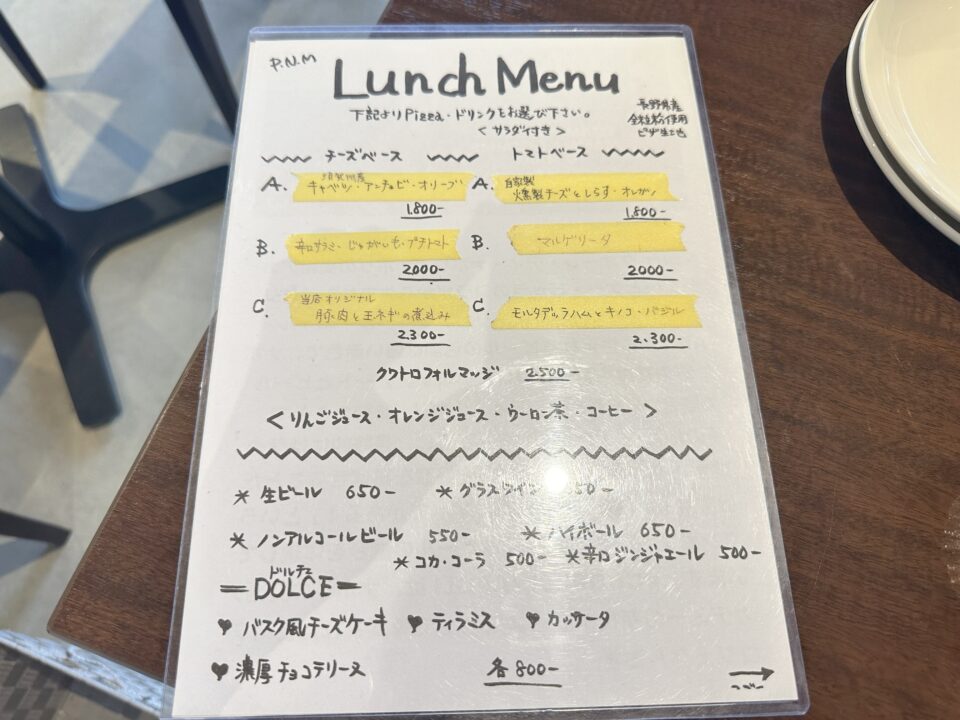 P.N.M
Lunch Menu
下記よりPizza・ドリンクをお選び下さい。
<サラダ付き>
長野県産
全粒粉使用
ピザ生地
チーズベース
A.
キャベツ・アンチョビ・オリーブ
1.800-
B.
辛口サラミ・じゃがいも・プチトマト
2000-
C.
当店オリジナル
豚肉と玉ネギの煮込み
2300-
トマトベース
A.
自家製
燻製チーズとしらす・オレガノ
1.800-
B.
マルゲリータ
2000-
C.
モルタデッラハムとキノコ・バジル
2.300-
クワトロフォルマッジ 2.500-
<りんごジュース・オレンジジュース・ウーロン茶・コーヒー>
* 生ビール 650- * グラスワイン 50-
* ノンアルコールビール 550- * ハイボール 650-
* コカ・コーラ 500- * 辛口ジンジャエール 500-
ドルチェ
=DOLCE=
♥ バスク風チーズケーキ ♥ ティラミス ♥ カッサータ
♥ 濃厚チョコテリーヌ 各800- →